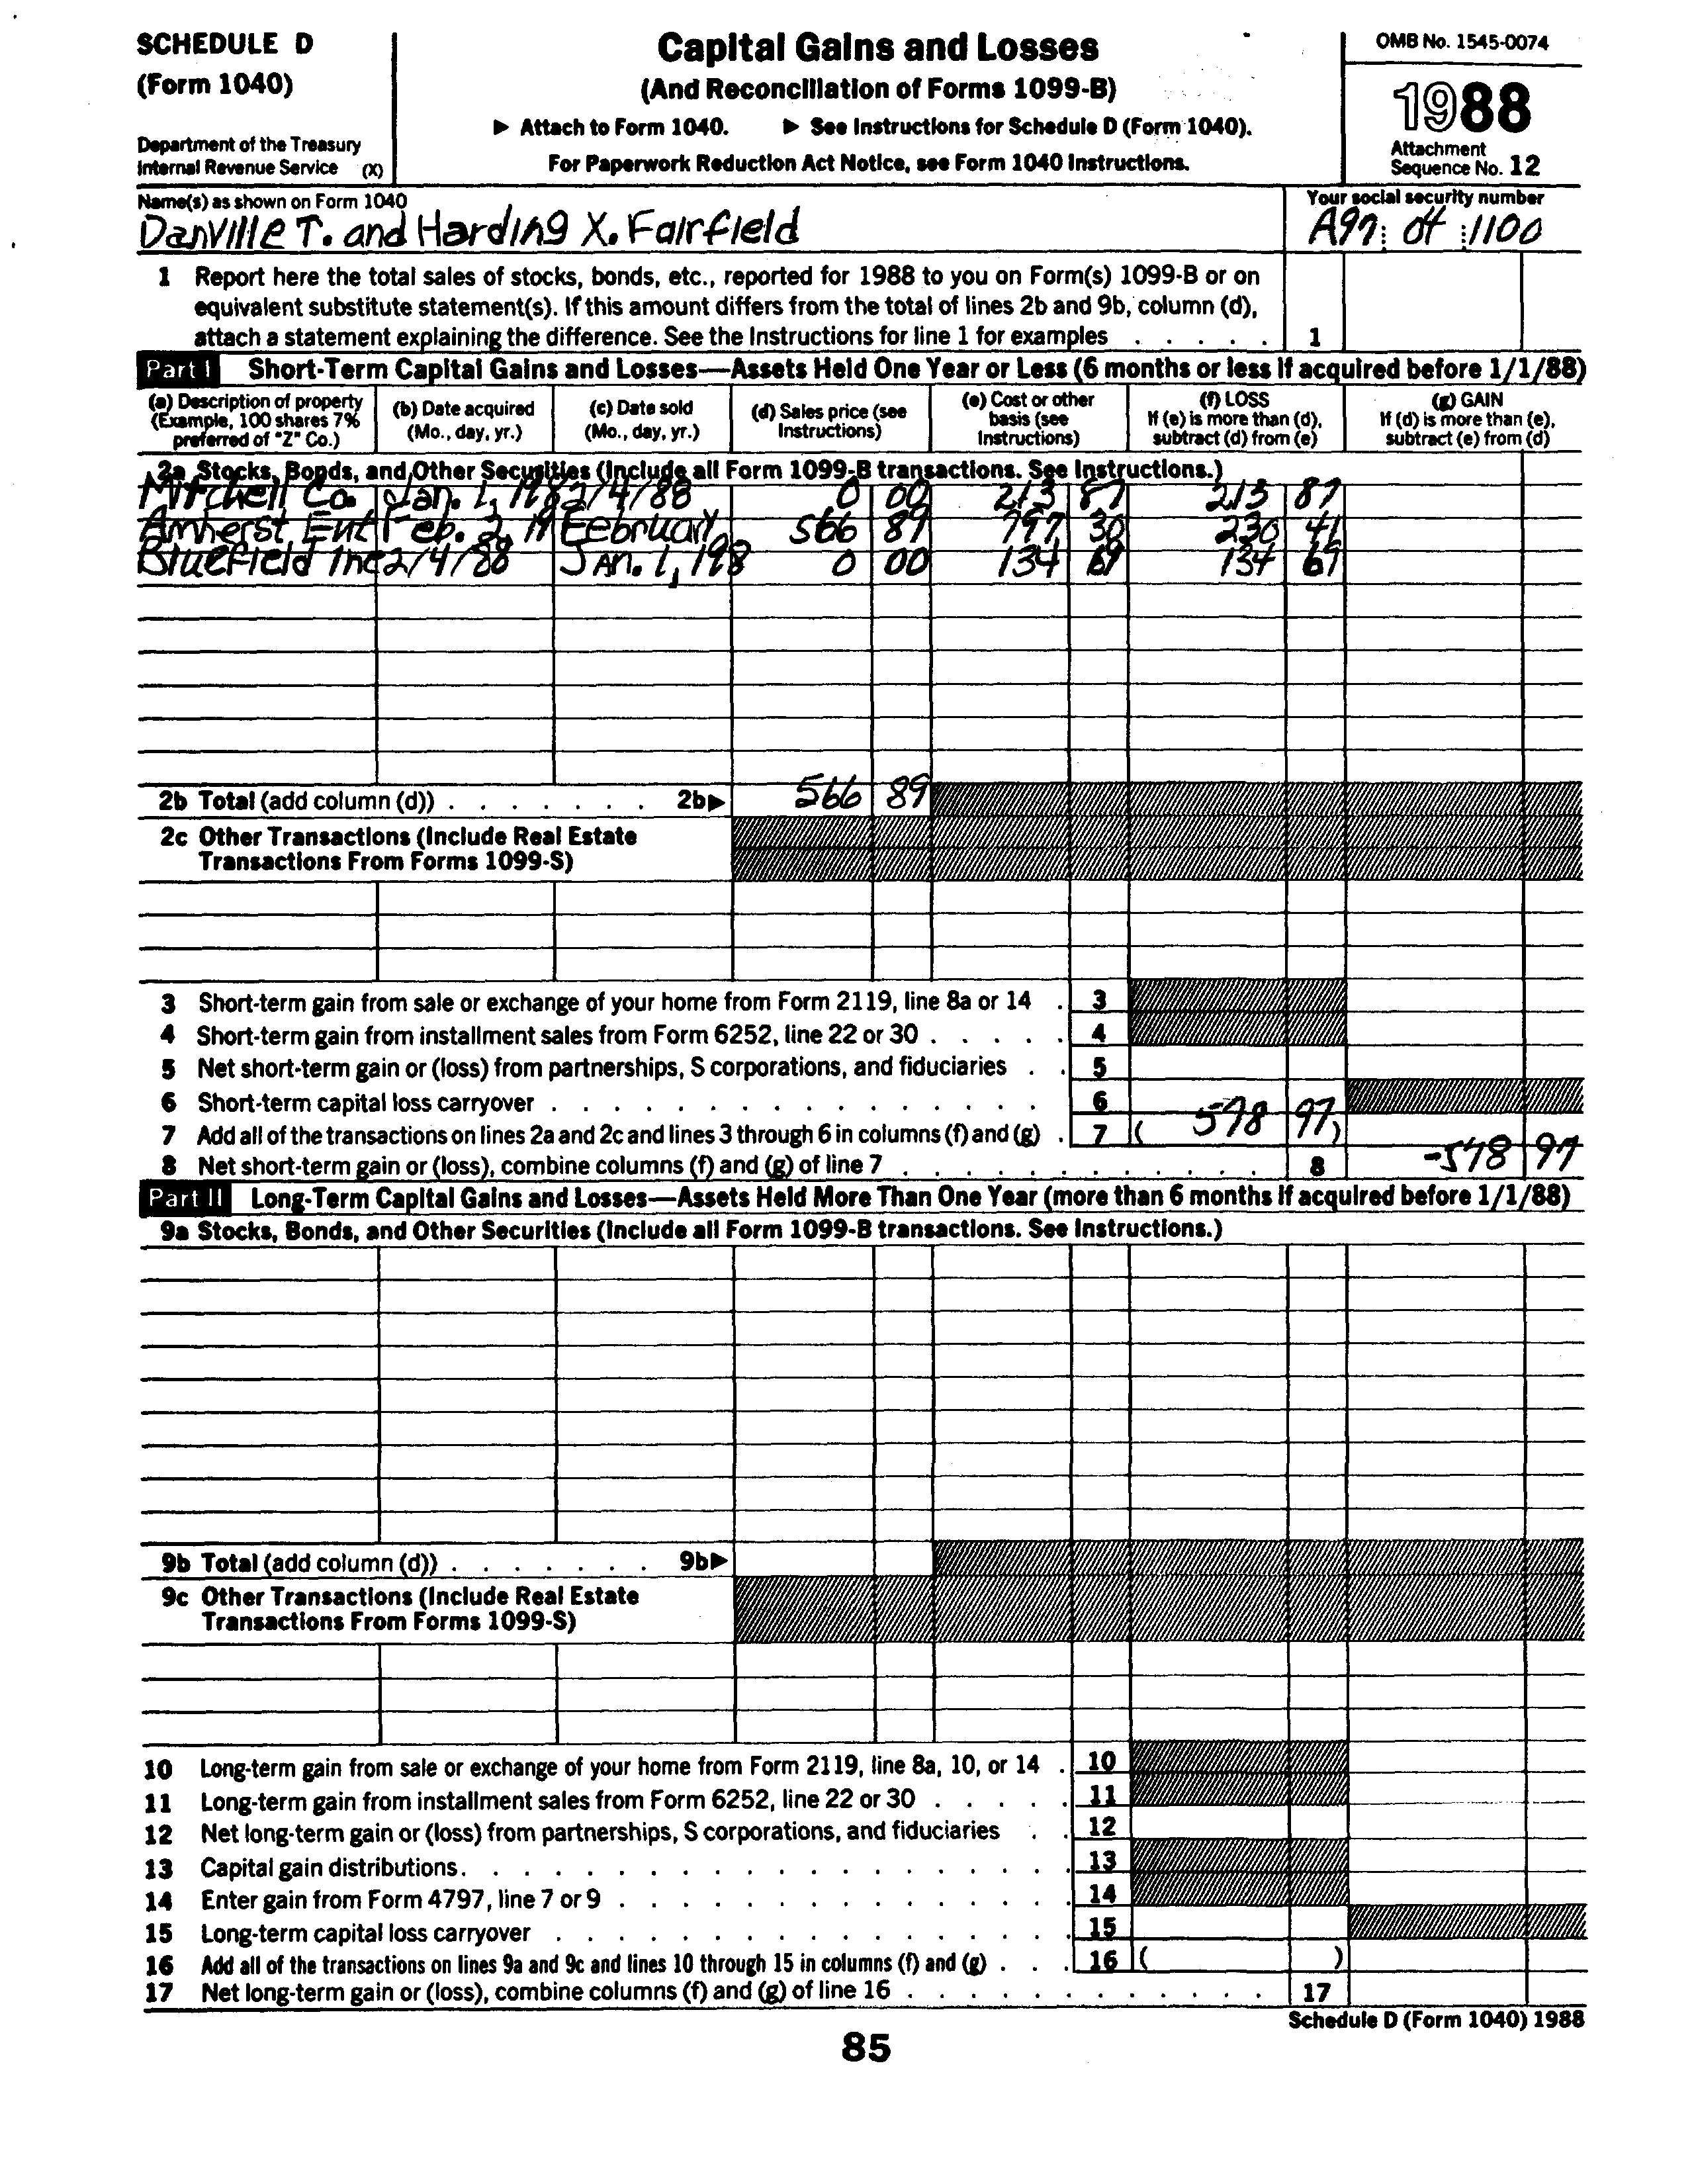 SCHEDULE D
(Form 1040)
Department of the Treasury
Internal Revenue Service (X)
Capital Gains and Losses
(And Reconciliation of Forms 1099-B)
▶ Attach to Form 1040. ▶ See Instructions for Schedule D (Form 1040).
For Paperwork Reduction Act Notice, see Form 1040 Instructions.
OMB No. 1545-0074
1988
Attachment
Sequence No. 12
Name(s) as shown on Form 1040
Danville T. and Harding X. Fairfield
Your social security number
A97: Of :1100
1 Report here the total sales of stocks, bonds, etc., reported for 1988 to you on Form(s) 1099-B or on
equivalent substitute statement(s). If this amount differs from the total of lines 2b and 9b, column (d),
attach a statement explaining the difference. See the Instructions for line 1 for examples . . . . . 1
Part I Short-Term Capital Gains and Losses—Assets Held One Year or Less (6 months or less if acquired before 1/1/88)
(a) Description of property
(Example, 100 shares 7%
preferred of "Z" Co.)
(b) Date acquired
(Mo., day, yr.)
(c) Date sold
(Mo., day, yr.)
(d) Sales price (see
Instructions)
(e) Cost or other
basis (see
Instructions)
(f) LOSS
If (e) is more than (d),
subtract (d) from (e)
(g) GAIN
If (d) is more than (e),
subtract (e) from (d)
2a Stocks, Bonds, and Other Securities (Include all Form 1099-B transactions. See Instructions.)
Mitchell Co. Jan. 1, 198 2/4/88 0 00 213 87 213 87
Amherst Ent Feb. 2, 19 February 566 89 797 30 230 41
Bluefield Inc 2/4/88 JAN. 1, 198 0 00 134 69 134 69
2b Total (add column (d)) . . . . . . . 2b▶ 566 89
2c Other Transactions (Include Real Estate
Transactions From Forms 1099-S)
3 Short-term gain from sale or exchange of your home from Form 2119, line 8a or 14 . 3
4 Short-term gain from installment sales from Form 6252, line 22 or 30 . . . . . 4
5 Net short-term gain or (loss) from partnerships, S corporations, and fiduciaries . . 5
6 Short-term capital loss carryover . . . . . . . . . . . . . . . . 6
7 Add all of the transactions on lines 2a and 2c and lines 3 through 6 in columns (f) and (g) . 7 ( 578 97 )
8 Net short-term gain or (loss), combine columns (f) and (g) of line 7 . . . . . . . . . . . . 8 -578 97
Part II Long-Term Capital Gains and Losses—Assets Held More Than One Year (more than 6 months if acquired before 1/1/88)
9a Stocks, Bonds, and Other Securities (Include all Form 1099-B transactions. See Instructions.)
9b Total (add column (d)) . . . . . . . 9b▶
9c Other Transactions (Include Real Estate
Transactions From Forms 1099-S)
10 Long-term gain from sale or exchange of your home from Form 2119, line 8a, 10, or 14 . 10
11 Long-term gain from installment sales from Form 6252, line 22 or 30 . . . . . 11
12 Net long-term gain or (loss) from partnerships, S corporations, and fiduciaries . . 12
13 Capital gain distributions . . . . . . . . . . . . . . . . . . . 13
14 Enter gain from Form 4797, line 7 or 9 . . . . . . . . . . . . . 14
15 Long-term capital loss carryover . . . . . . . . . . . . . . . . 15
16 Add all of the transactions on lines 9a and 9c and lines 10 through 15 in columns (f) and (g) . . . 16 ( )
17 Net long-term gain or (loss), combine columns (f) and (g) of line 16 . . . . . . . . . . . . 17
Schedule D (Form 1040) 1988
85